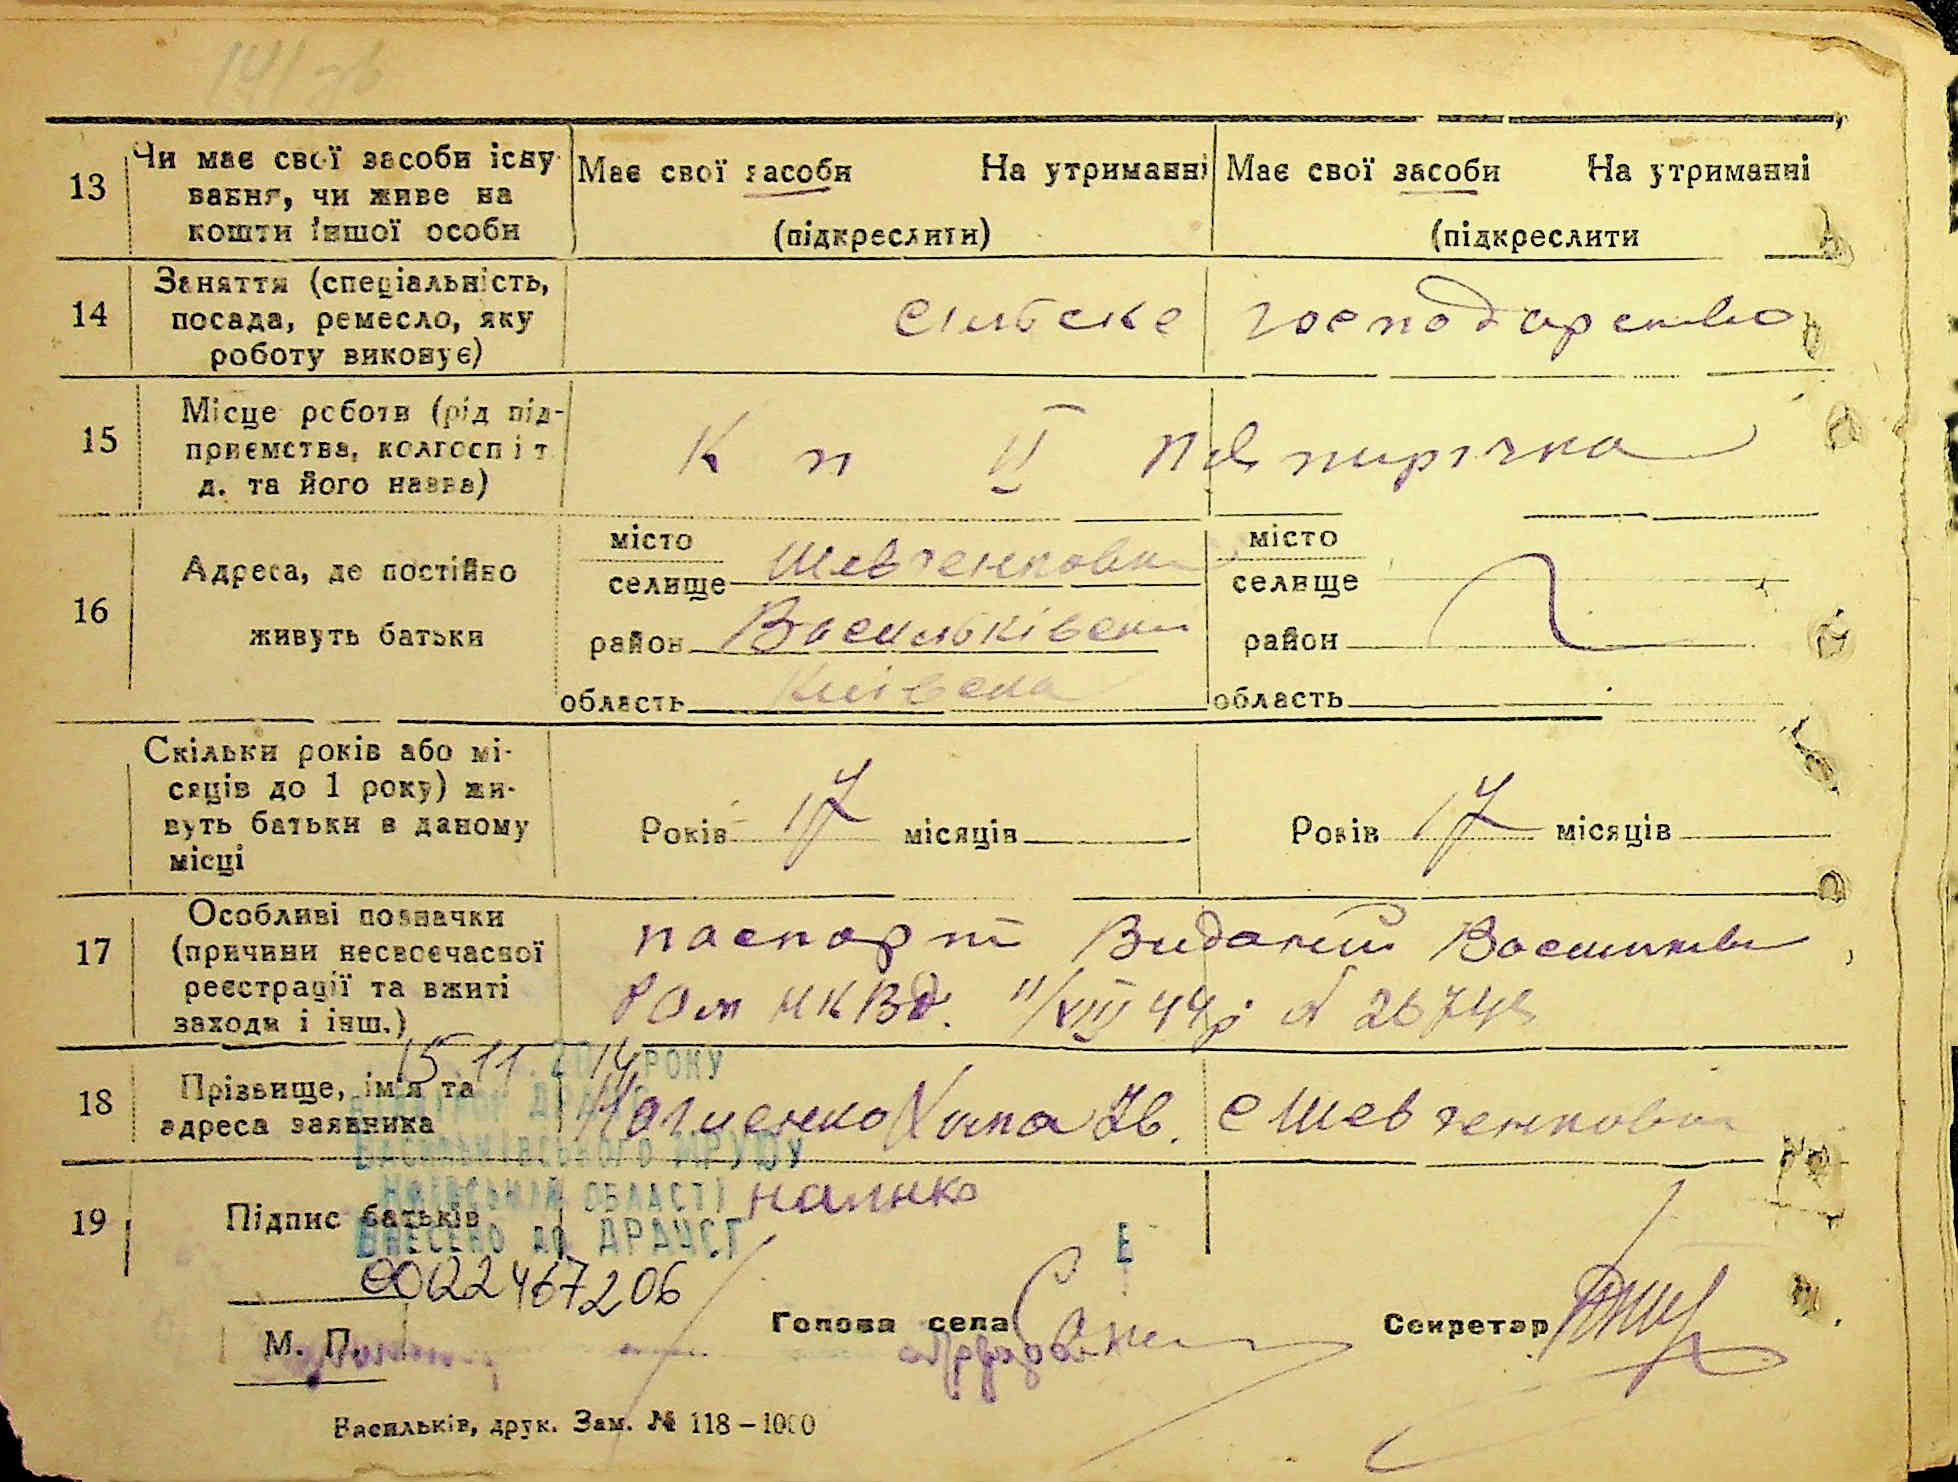 141 зв
13 Чи має свої засоби існу- Має свої засоби На утриманні Має свої засоби На утриманні
вання, чи живе на
кошти іншої особи (підкреслити) (підкреслити
14 Заняття (спеціальність,
посада, ремесло, яку сільське господарство
роботу виконує)
15 Місце роботи (рід під-
приємства, колгосп і т. К п II П'ятирічка
д. та його назва)
16 Адреса, де постійно місто місто
селище Шевченковка селище
живуть батьки район Васильківськ район
область Київська область
Скільки років або мі-
сяців до 1 року) жи-
вуть батьки в даному Років 17 місяців Років 17 місяців
місці
17 Особливі позначки паспорт Виданий Васильків
(причини несвоєчасної
реєстрації та вжиті НКВД. 11/VIII 44р №
заходи і інш.)
15.11.2014 РОКУ
18 Прізвище, ім'я та
адреса заявника Ів. с Шевченковка
ВАСИЛЬКІВСЬКОГО МРУЮ
КИЇВСЬКІЙ ОБЛАСТІ
19 Підпис батьків
ВНЕСЕНО ДО ДРАЦСГ
00122467206
М. П. Голова села Секретар
Васильків, друк. Зам. № 118–1000